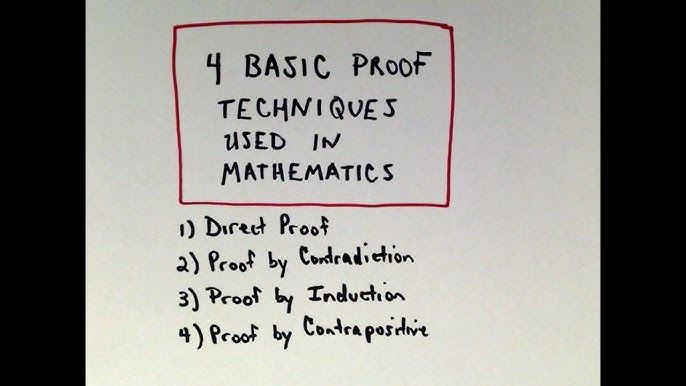 4 BASIC PROOF
TECHNIQUES
USED IN
MATHEMATICS
1) Direct Proof
2) Proof by Contradiction
3) Proof by Induction
4) Proof by Contrapositive